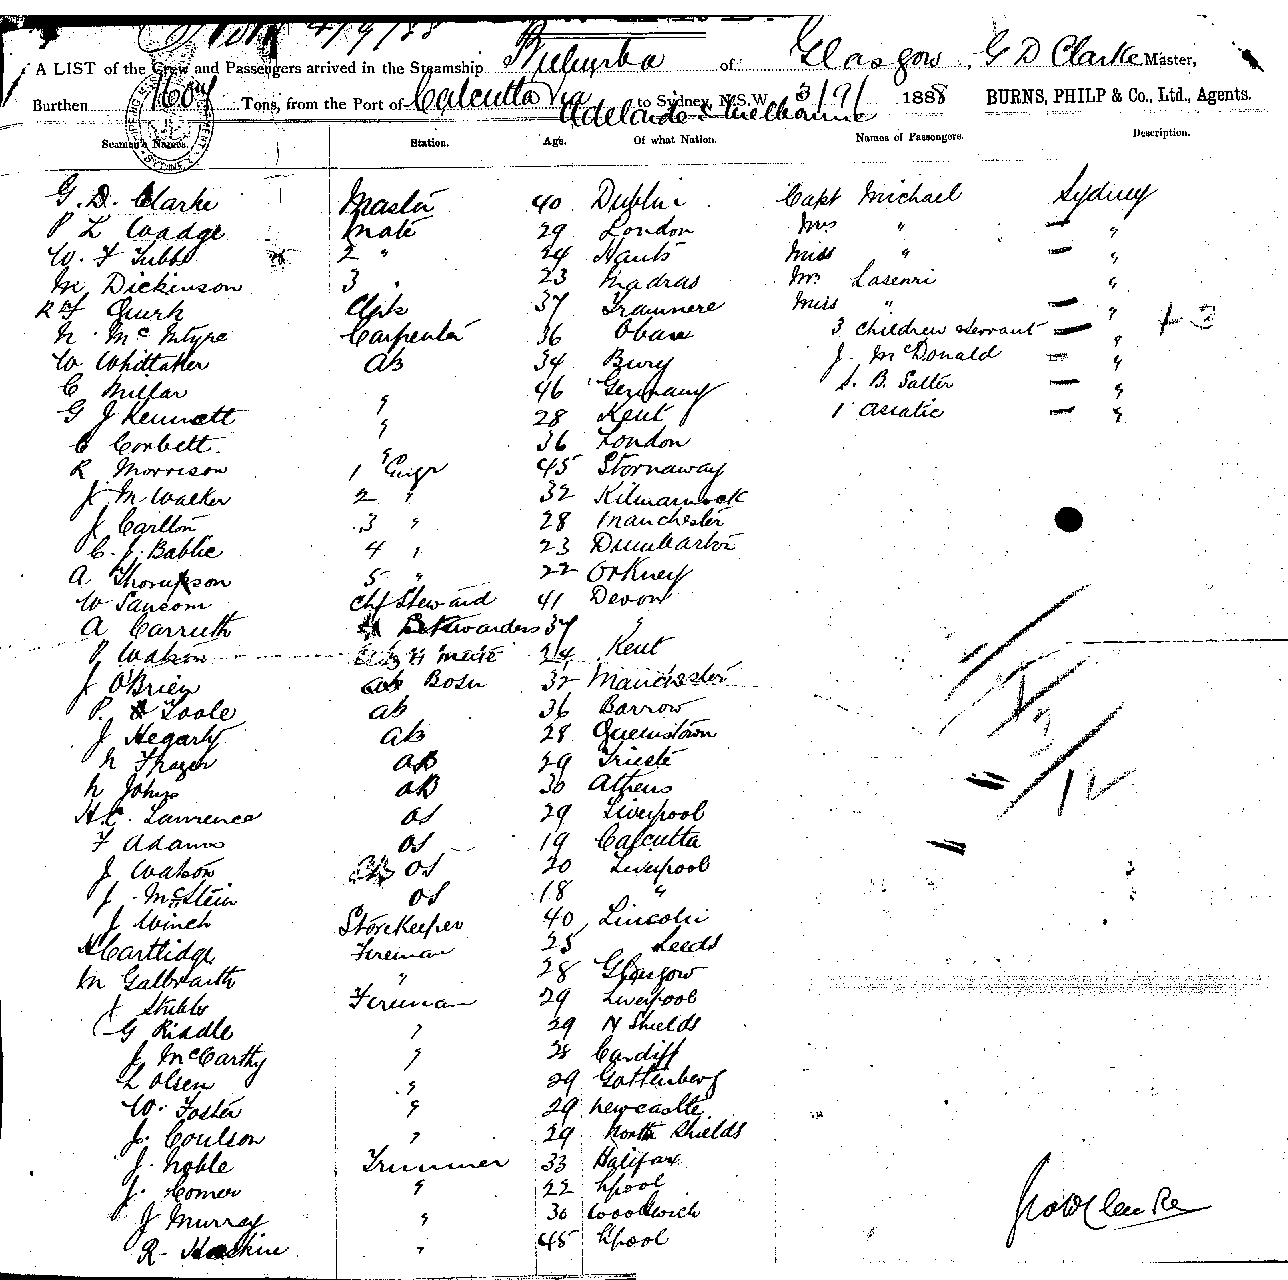 4/9/88
A LIST of the Crew and Passengers arrived in the Steamship of Glasgow, G D Clarke Master,
Burthen 1604 Tons, from the Port of Calcutta via Adelaide & Melbourne to Sydney, N.S.W. 3/9/ 1888 BURNS, PHILP & Co., Ltd., Agents.
Seamen's Names. Station. Age. Of what Nation. Names of Passengers. Description.
G. D. Clarke Master 40 Dublin Capt Michael Sydney
P L Wadge Mate 29 London Mrs " "
W. F Tubbs 2 " 24 Hants Miss " "
M Dickinson 3 " 23 Madras Mr Lasenri "
R F Quirk 37 Tranmere Miss " "
N. McIntyre Carpenter 36 Oban 3 children servant " + 3
W Whittaker AB 34 Bury J. McDonald "
C Millar " 46 Germany S. B. Salter "
G J Kennett " 28 Kent 1 Asiatic "
C Corbett. " 36 London
R Morrison 1 Engr 45 Stornaway
J M Walker 2 " 32 Kilmarnock
J Carlton 3 " 28 Manchester
C. J. Bablie 4 " 23 Dumbarton
A Thompson 5 " 22 Orkney
W Sansom Chf Steward 41 Devon
A Carruth 37 "
P Watson 24 Kent
J O'Brien Bosn 32 Manchester
P. O Toole ab 36 Barrow
J Hegarty ab 28 Queenstown
N Frazer aB 29 Trieste
N Johns aB 30 Athens
H.C. Lawrence OS 29 Liverpool
F Adams OS 19 Calcutta
J Watson OS 20 Liverpool
J. McStein OS 18 "
J Winch Storekeeper 40 Lincoln
H Cartlidge Fireman 25 Leeds
M Galbraith " 28 Glasgow
J Stubbs Fireman 29 Liverpool
G Riddle " 29 N Shields
J. McCarthy " 28 Cardiff
L Olsen " 29 Gottenberg
W. Foster " 29 Newcastle
J. Coulson " 29 North Shields
J. Noble Trimmer 33 Halifax
J. Comer " 22 Lpool
J Murray " 30 Woolwich
R. Haskin " 45 Lpool
12